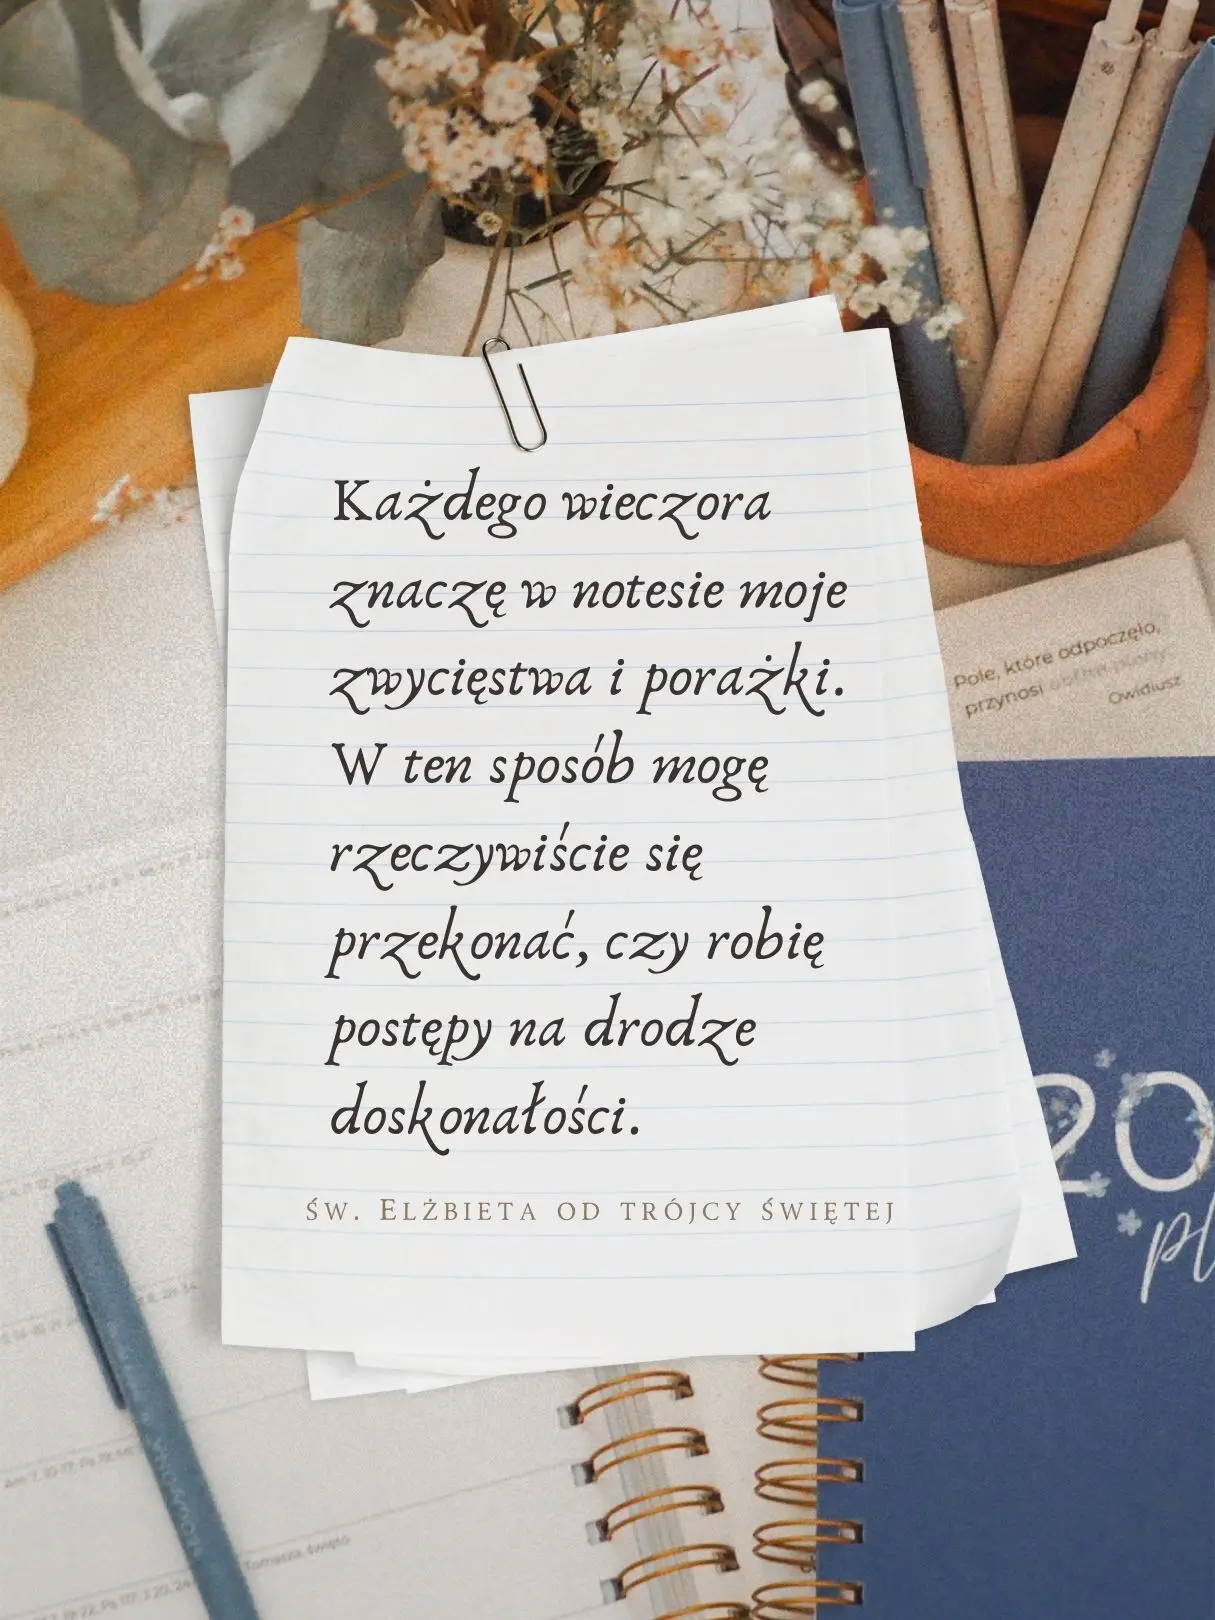 Każdego wieczora
znaczę w notesie moje
zwycięstwa i porażki.
W ten sposób mogę
rzeczywiście się
przekonać, czy robię
postępy na drodze
doskonałości.
św. Elżbieta od trójcy świętej
Pole, które odpoczęło,
przynosi
Owidiusz
20
pl
Tomasza, święto